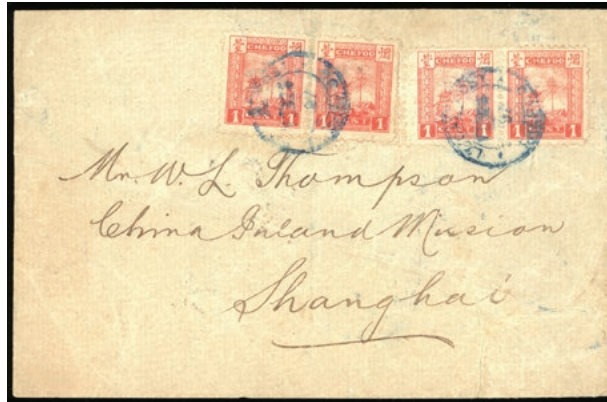 CHEFOO CHEFOO CHEFOO CHEFOO
1 1 1 1 1 1 1
Mr. W. L. Thompson
China Inland Mission
Shanghai